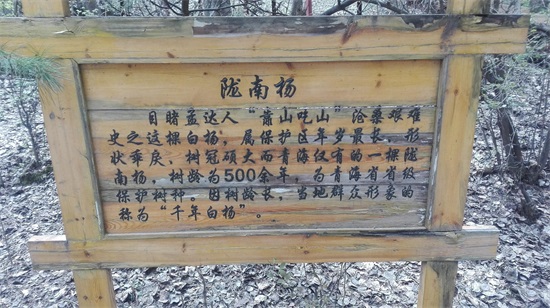 陇南杨
目睹孟达人“靠山吃山”沧桑艰难
史之这棵白杨，属保护区年岁最长，形
状乖戾，树冠硕大而青海仅有的一棵陇
南杨，树龄为500余年，为青海省省级
保护树种。因树龄长，当地群众形象的
称为“千年白杨”。